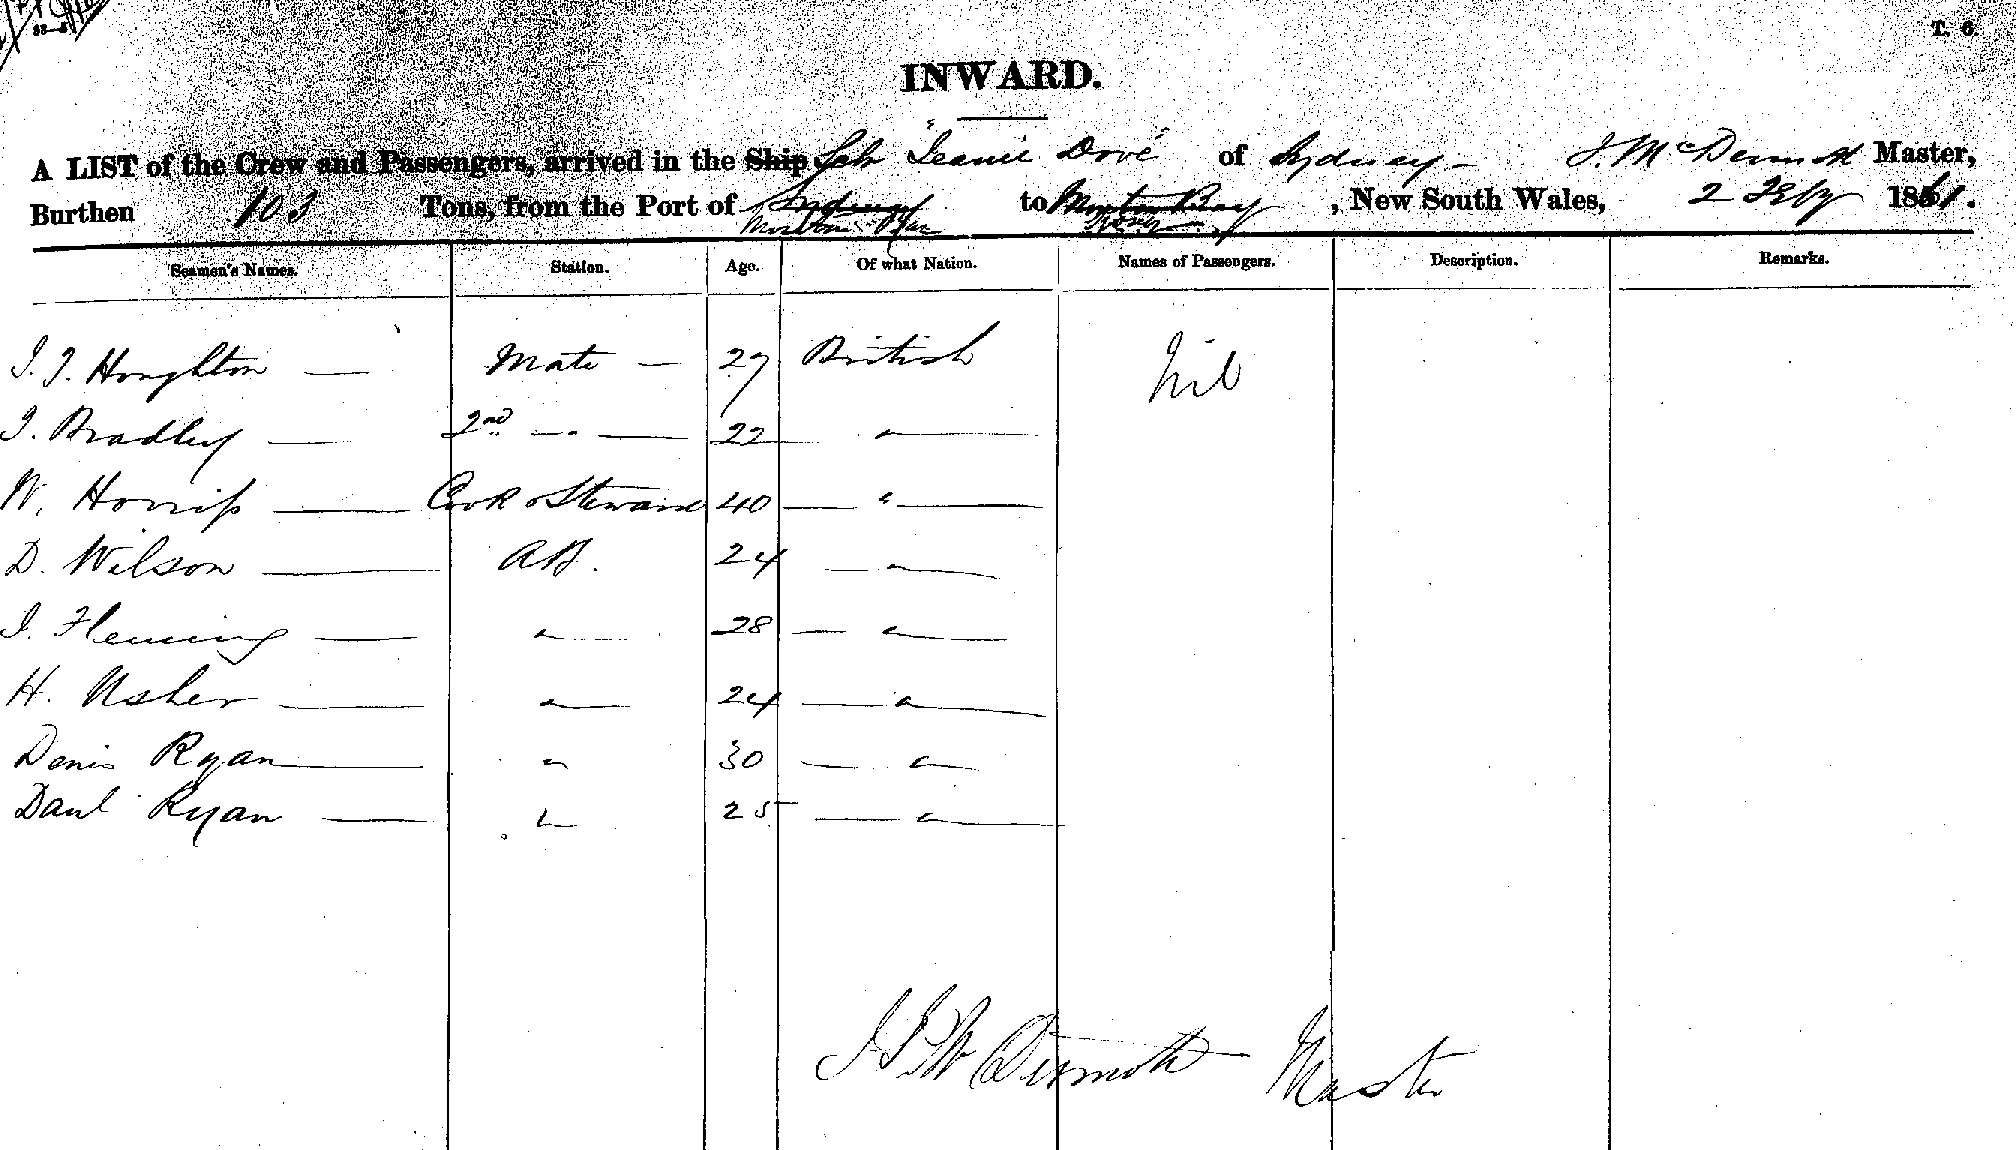 T. 6.
INWARD.
A LIST of the Crew and Passengers, arrived in the Ship Sch "Jeanie Dove" of Sydney - J. McDermott Master,
Burthen 103 Tons, from the Port of Sydney Moreton Bay to Moreton Bay , New South Wales, 2 Feby 1861.
Seamen's Names. Station. Age. Of what Nation. Names of Passengers. Description. Remarks.
J. J. Houghton — Mate — 27 British Nil
J. Bradley — 2nd — " — 22 — " —
W. Horriss — Cook & Steward 40 — " —
D. Wilson — AB. 24 — " —
J. Fleming — " — 28 — " —
H. Usher — " — 24 — " —
Denis Ryan — " 30 — " —
Danl Ryan — " 25 — " —
McDermott Master